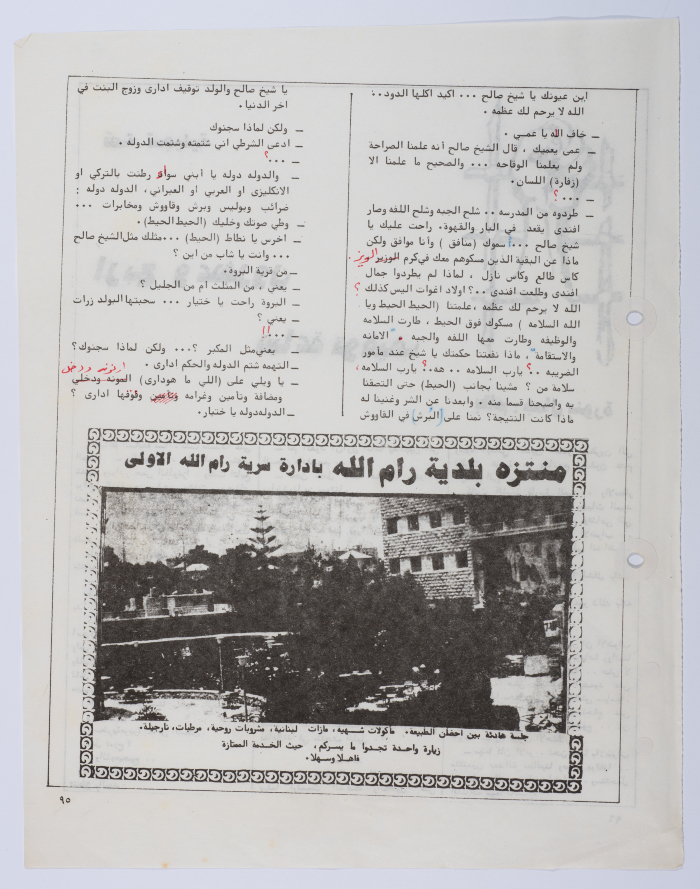 اين عيونك يا شيخ صالح ... اكيد اكلها الدود..
الله لا يرحم لك عظمه .
ــ خاف الله يا عمـي .
ــ عمى يعميك ، قال الشيخ صالح أنه علمنا الصراحة
ولم يعلمنا الوقاحه ... والصحيح ما علمنا الا
(زقارة) اللسان.
ــ ...؟
ــ طردوه من المدرسه .. شلح الجبه وشلح اللفه وصار
افندي يقعد في البار والقهوة. راحت عليك يا
شيخ صالح ... أسموك (منافق ) وأنا موافق ولكن
ماذا عن البقية الذين مسكوهم معك في كرم الوزير الويز.
كاس طالع وكاس نازل ، لماذا لم يطردوا جمال
افندي وطلعت افندي ..؟ اولاد اغوات اليس كذلك ؟
الله لا يرحم لك عظمه ، علمتنا (الحيط الحيط ويا
الله السلامه ) مسكوك فوق الحيط ، طارت السلامه
والوظيفه وطارت معها اللفه والجبه . " الامانه
والاستقامة " ، ماذا نفعتنا حكمتك يا شيخ عند مأمور
الضريبه ..؟ يارب السلامه .. هه..؟ يارب السلامه ،
سلامة من ؟ مشينا بجانب (الحيط) حتى التصقنا
به واصبحنا قسما منه . وابعدنا عن الشر وغنينا له
ماذا كانت النتيجة؟ نمنا على (البرش) في القاووش
يا شيخ صالح والولد توقيف اداري وزوج البنت في
اخر الدنيا .
ــ ولكن لماذا سجنوك
ــ ادعى الشرطي اني شتمته وشتمت الدوله .
ــ ...؟
ــ والدوله دوله يا أبني سواء رطنت بالتركي او
الانكليزي او العربي او العبراني ، الدوله دوله :
ضرائب وبوليس وبرش وقاووش ومخابرات ...
ــ وطي صوتك وخليك (الحيط الحيط) .
ــ اخرس يا نطاط (الحيط) ...مثلك مثل الشيخ صالح
... وانت يا شاب من اين ؟
ــ من قرية البروة.
ــ يعني ، من المثلث ام من الجليل ؟
ــ البروة راحت يا ختيار ... سحبتها البولد زرات
ــ يعني ؟
ــ ...!!
ــ يعني مثل المكبر ؟... ولكن لماذا سجنوك؟
ــ التهمه شتم الدوله والحكم اداري .
ــ يا ويلي على (اللي ما هوداري) المونه ودخلي ارنونه ودخل
ومضافة وتامين وغرامه وتامين وفوقها اداري ؟
ــ الدوله دوله يا ختيار.
منتزه بلدية رام الله بادارة سرية رام الله الاولى
جلسة هادئة بين احضان الطبيعة، ماكولات شهية، مازات لبنانية، مشروبات روحية، مرطبات، نارجيلة.
زيارة واحدة تجدوا ما يسركم، حيث الخدمة الممتازة
فاهلا وسهلا.
٩٥